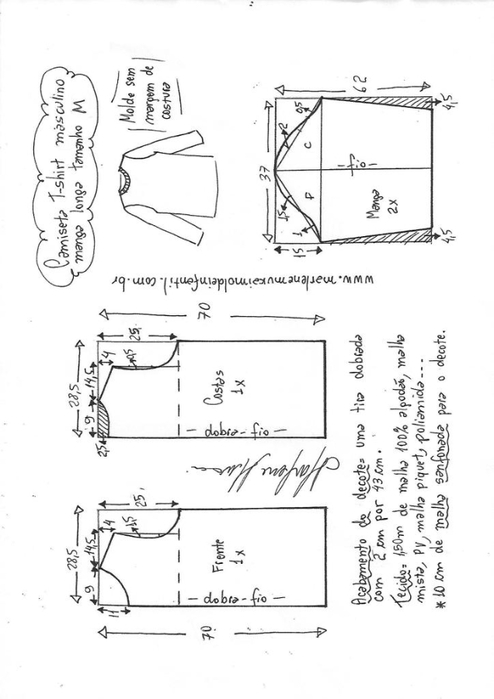 Camiseta T-shirt masculino
manga longa tamanho M
Molde sem
margem de
costura
37
62
15
1,5
1
2
0,5
P
C
fio
Manga
2x
4,5
4,5
www.marlenemukaimoldeinfantil.com.br
28,5
9
14,5
4
25
2,5
1,5
70
Costas
1x
fio - dobra
28,5
9
14,5
4
25
11
1,5
70
Frente
1x
fio - dobra
Acabamento do decote = uma tira dobrada
com 2 cm por 43 cm.
Tecido = 1,50m de malha 100% algodão, malha
mista, PV, malha piquet, poliamida...
* 10 cm de malha sanfonada para o decote.